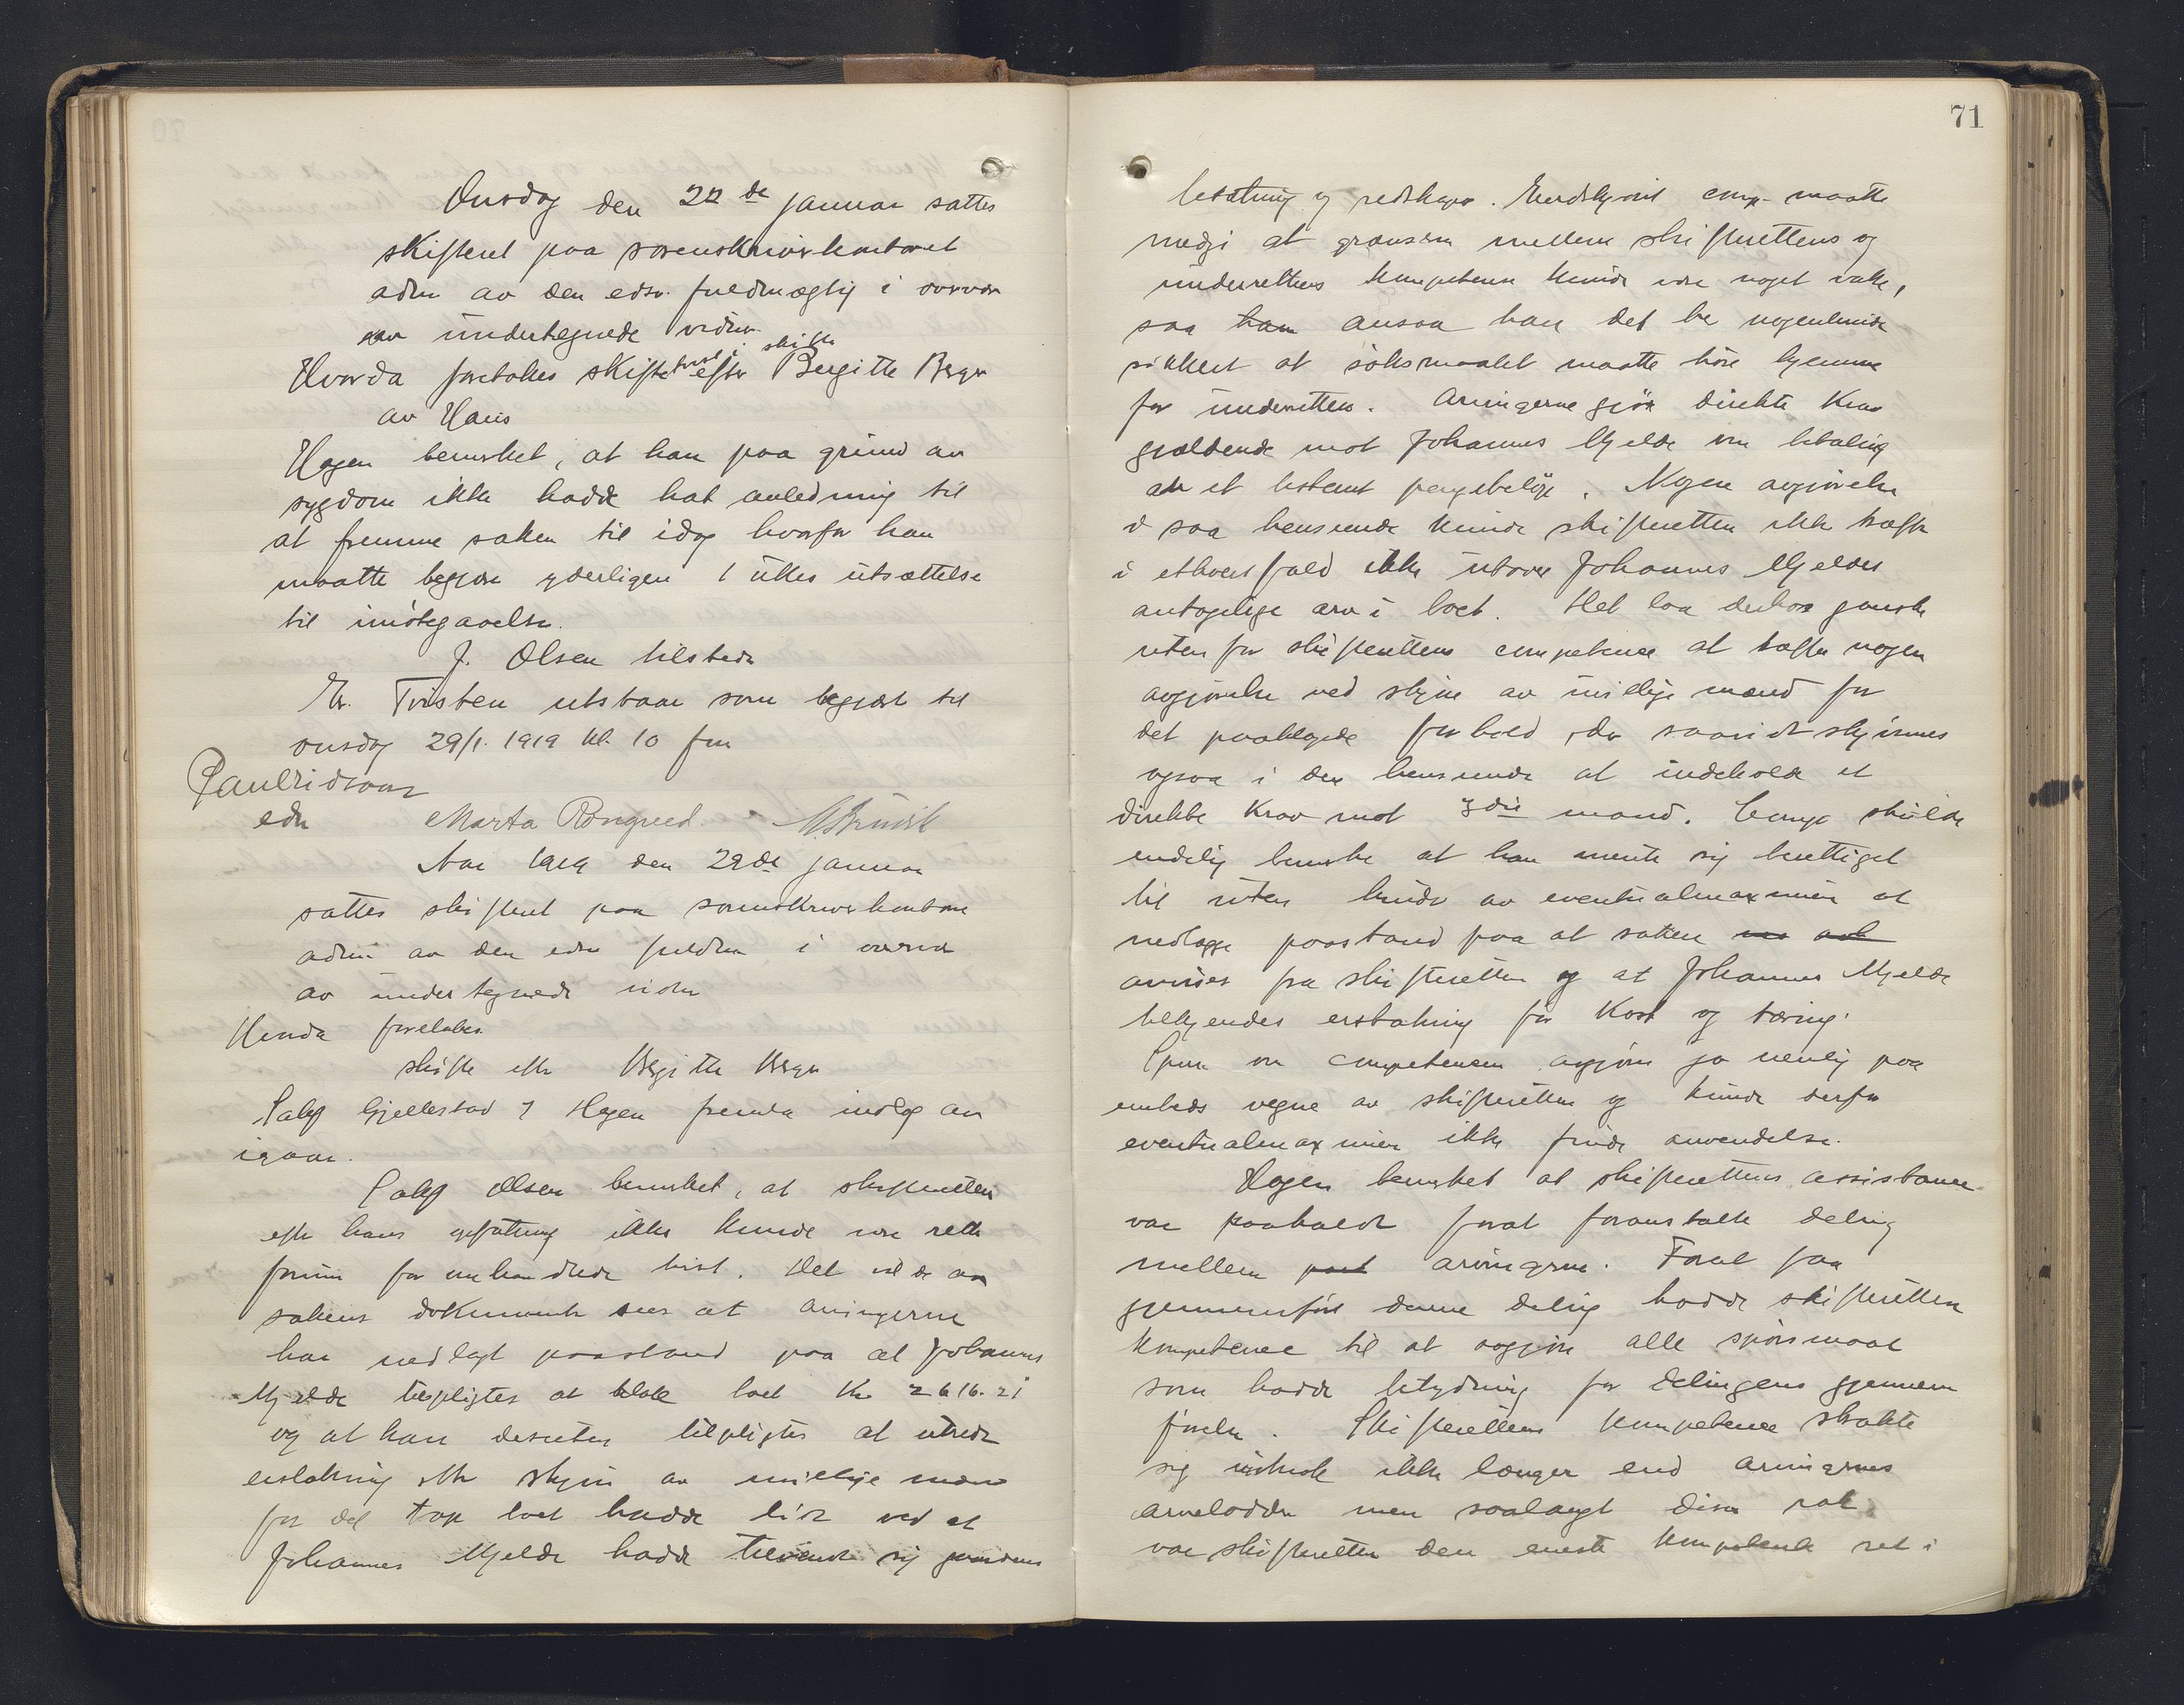 Onsdag den 22de januar sattes
skifteret paa sorenskriverkontoret
adm av den edsv. fuldmægtig i overvær
av undertegnede vidner
Hvorda foretokes skiftetvist i skifte efter Birgitte Berge
av Haus
Hagen bemerket, at han paa grund av
sygdom ikke hadde hat anledning til
at fremme saken til idag hvorfor han
maatte begjære yderligere 1 ukes utsættelse
til imøtegaaelse.
J. Olsen tilstede
Er. Tvisten utstaar som begjært til
onsdag 29/1. 1919 kl. 10 fm
edsv Marta
Aar 1919 den 29de januar
sattes skifteret paa sorenskriverkontoret
adm av den edsv fuldm i overvær
av undertegnede vidner
Hvorda foretokes
skifte efter Birgitte Berge
Sakf Gjellestad f Hagen fremla indlæg av
igaar.
Sakf Olsen bemerket, at skifteretten
efter hans opfatning ikke kunde være rette
forum for omhandlede tvist. Det vil av
sakens dokumenter sees at arvingerne
har nedlagt paastand paa at Johannes
Mjelde tilpligtes at betale boet Kr 2616.21
og at han desuten tilpligtes at utrede
erstatning efter skjøn av uvillige mænd
for det tap boet hadde lidt ved at
Johannes Mjelde hadde tilvendt sig gaardens
71
besætning og redskaper. Endskjønt comp. maatte
medgi at grænsen mellem skifterettens og
underrettens kompetense kunde være noget vakk,
saa ansaa han det for nogenlunde
sikkert at søksmaalet maatte høre hjemme
for underretten. Arvingerne gjør direkte krav
gjældende mot Johannes Mjelde om betaling
av et bestemt pengebeløp. Nogen avgjørelse
i saa henseende kunde skifteretten ikke træffe
i ethvert fald ikke utover Johannes Mjeldes
antagelige arv i boet. Det laa derhos ganske
uten for skifterettens competence at træffe nogen
avgjørelse ved skjøn av uvillige mænd for
det paaklagede forhold, da saavidt skjønnes
ogsaa i den henseende at indeholde et
direkte krav mot 3die mand. Comp. skulde
endelig bemerke at han mente sig berettiget
til uten hinder av eventualmaximen at
nedlægge paastand paa at saken
avvises fra skifteretten og at Johannes Mjelde
tilkjendes erstatning for kost og tæring.
Spm om competencen avgjøres jo nemlig paa
embeds vegne av skifteretten og kunde derfor
eventualmaximen ikke finde anvendelse.
Hagen bemerket at skifterettens assistance
var paakaldt forat foranstalte deling
mellem arvingerne. Forat faa
gjennemført denne deling hadde skifteretten
kompetence til at avgjøre alle spørsmaal
som hadde betydning for delingens gjennem
førelse. Skifterettens kompetence strakte
sig ikke længer end arvingernes
arvelodder men saalangt disse rak
var skifteretten den eneste kompetente ret i